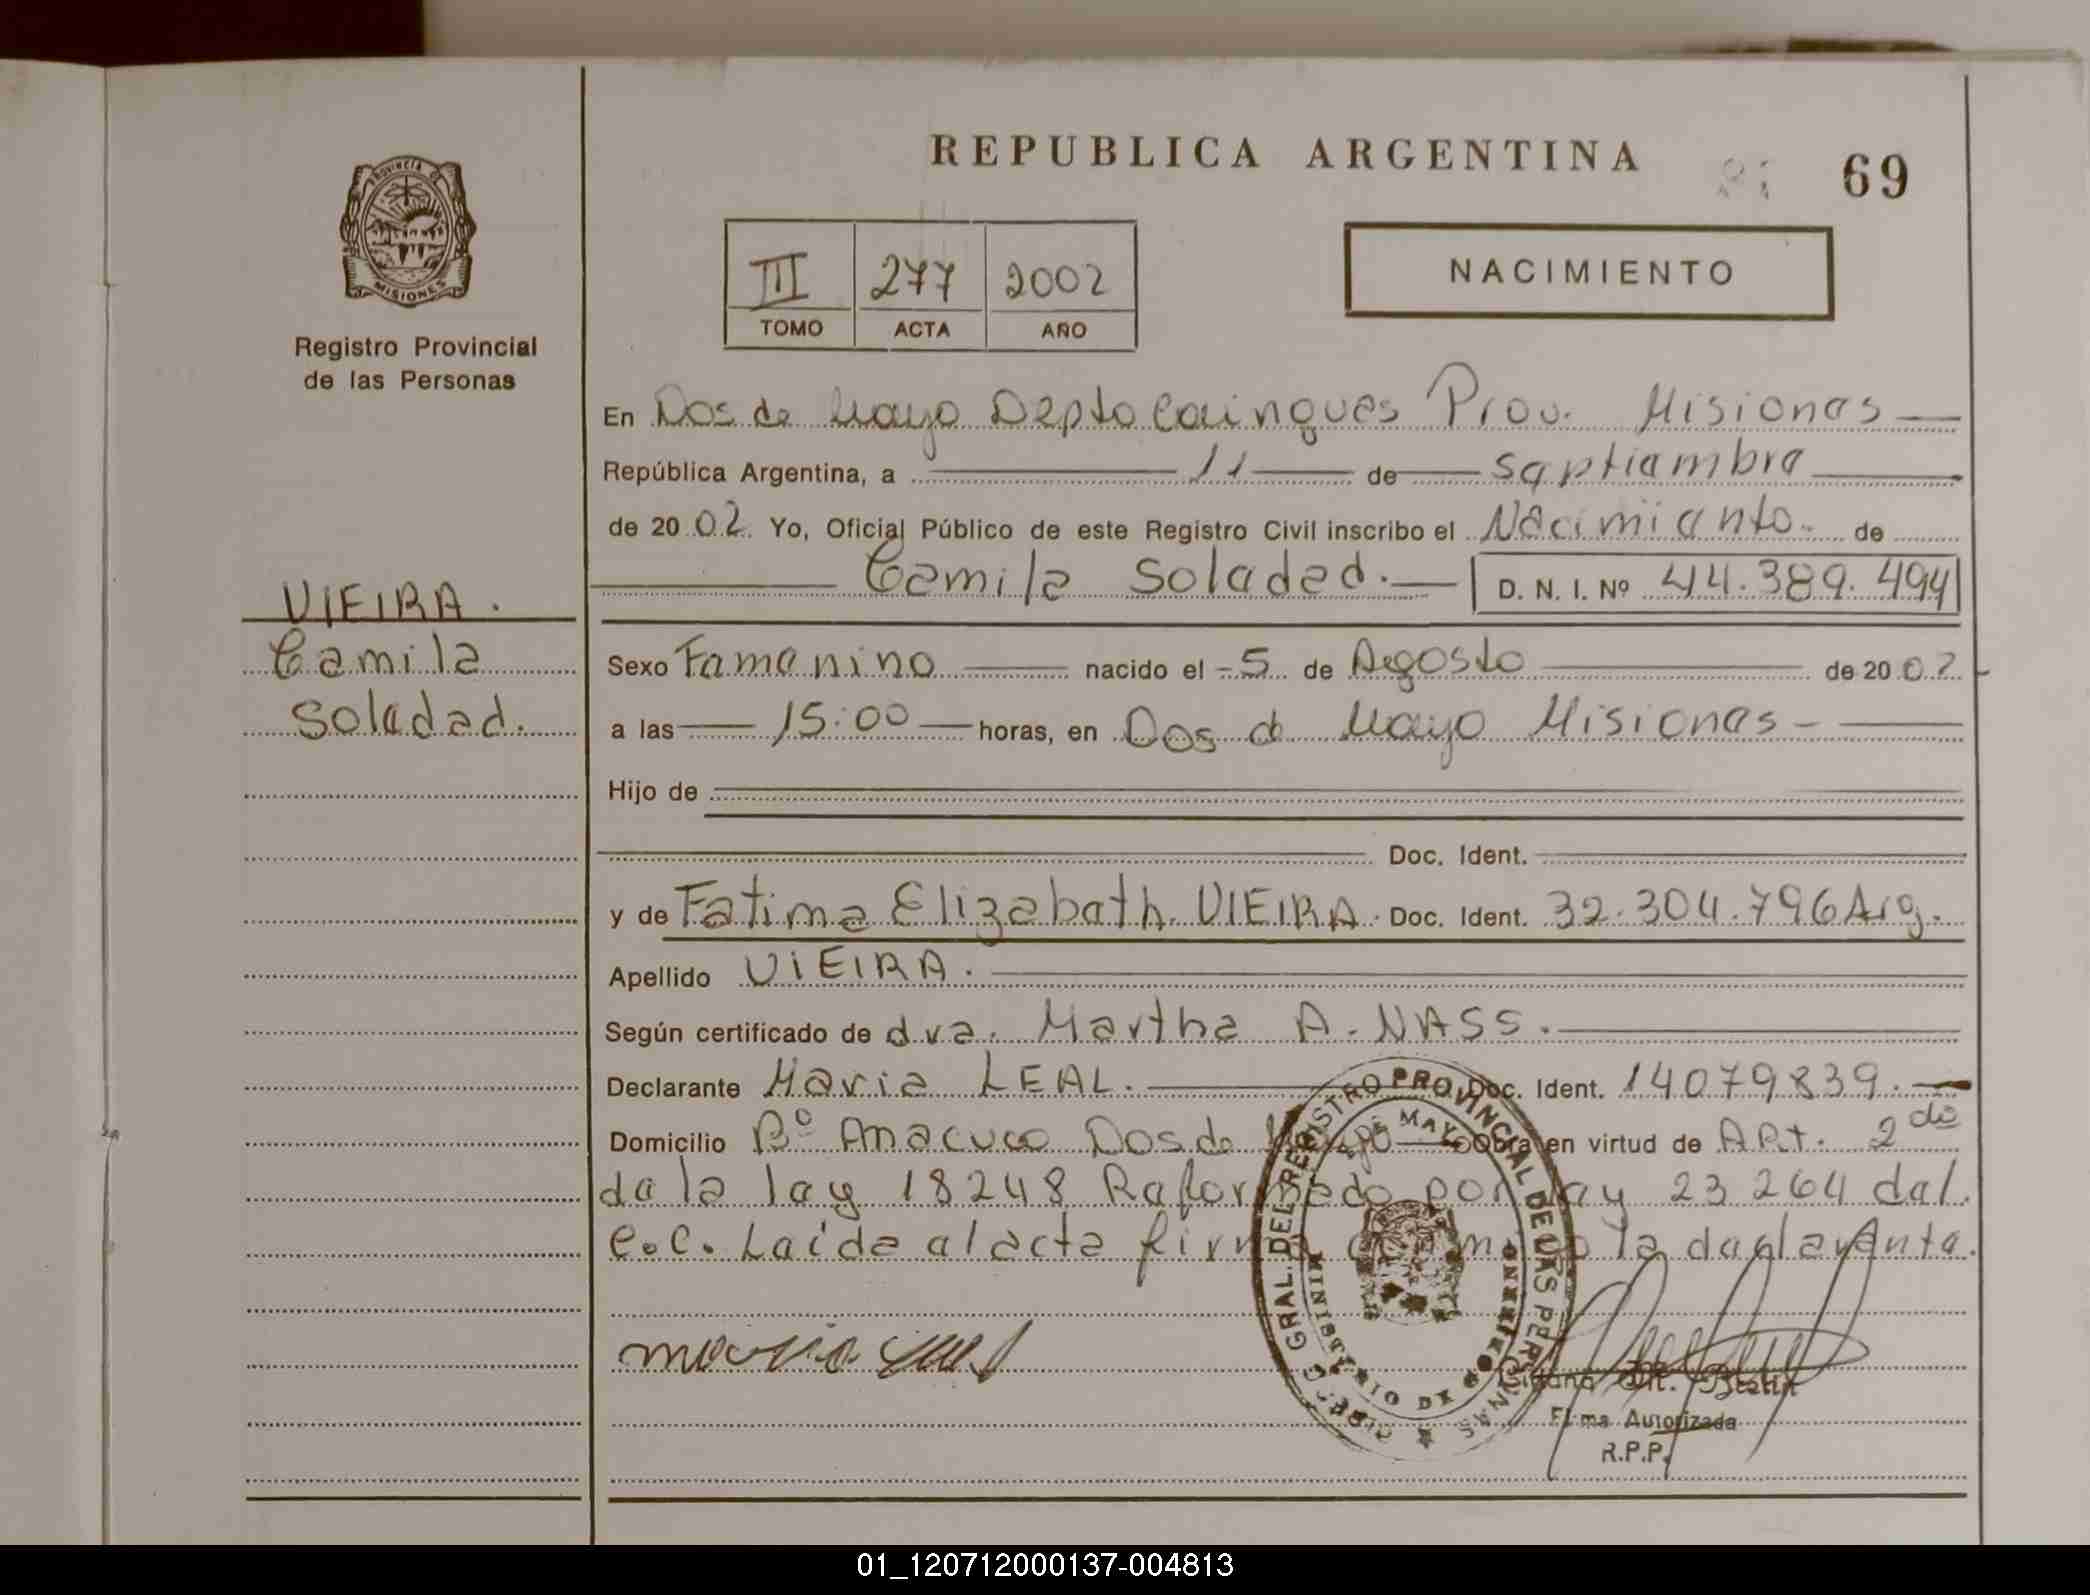 REPUBLICA ARGENTINA
69
PROVINCIA DE
MISIONES
Registro Provincial
de las Personas
III 277 2002
TOMO ACTA AÑO
NACIMIENTO
En Dos de Mayo Depto Cainguas Prov. Misiones
República Argentina, a 11 de septiembre
de 2002 Yo, Oficial Público de este Registro Civil inscribo el Nacimiento de
Camila Soledad. D. N. I. Nº 44.389.494
VIEIRA.
Camila
Soledad.
Sexo Femenino nacido el 5 de Agosto de 2002
a las 15:00 horas, en Dos d Mayo Misiones
Hijo de
Doc. Ident.
y de Fatima Elizabeth VIEIRA. Doc. Ident. 32.304.796 Arg.
Apellido VIEIRA.
Según certificado de dra. Martha A. NASS.
Declarante Maria LEAL. Doc. Ident. 14079839.
Domicilio Bº Anacuco Dos de Mayo Obra en virtud de ARt. 2do
de la ley 18248 Reformado por ley 23264 del
C.C. Leida el acta firma la declarante.
DIREC. GRAL. DEL REGISTRO PROVINCIAL DE LAS PERSONAS
MINISTERIO DE GOBIERNO
DE MAYO
Firma Autorizada
R.P.P.
01_120712000137-004813